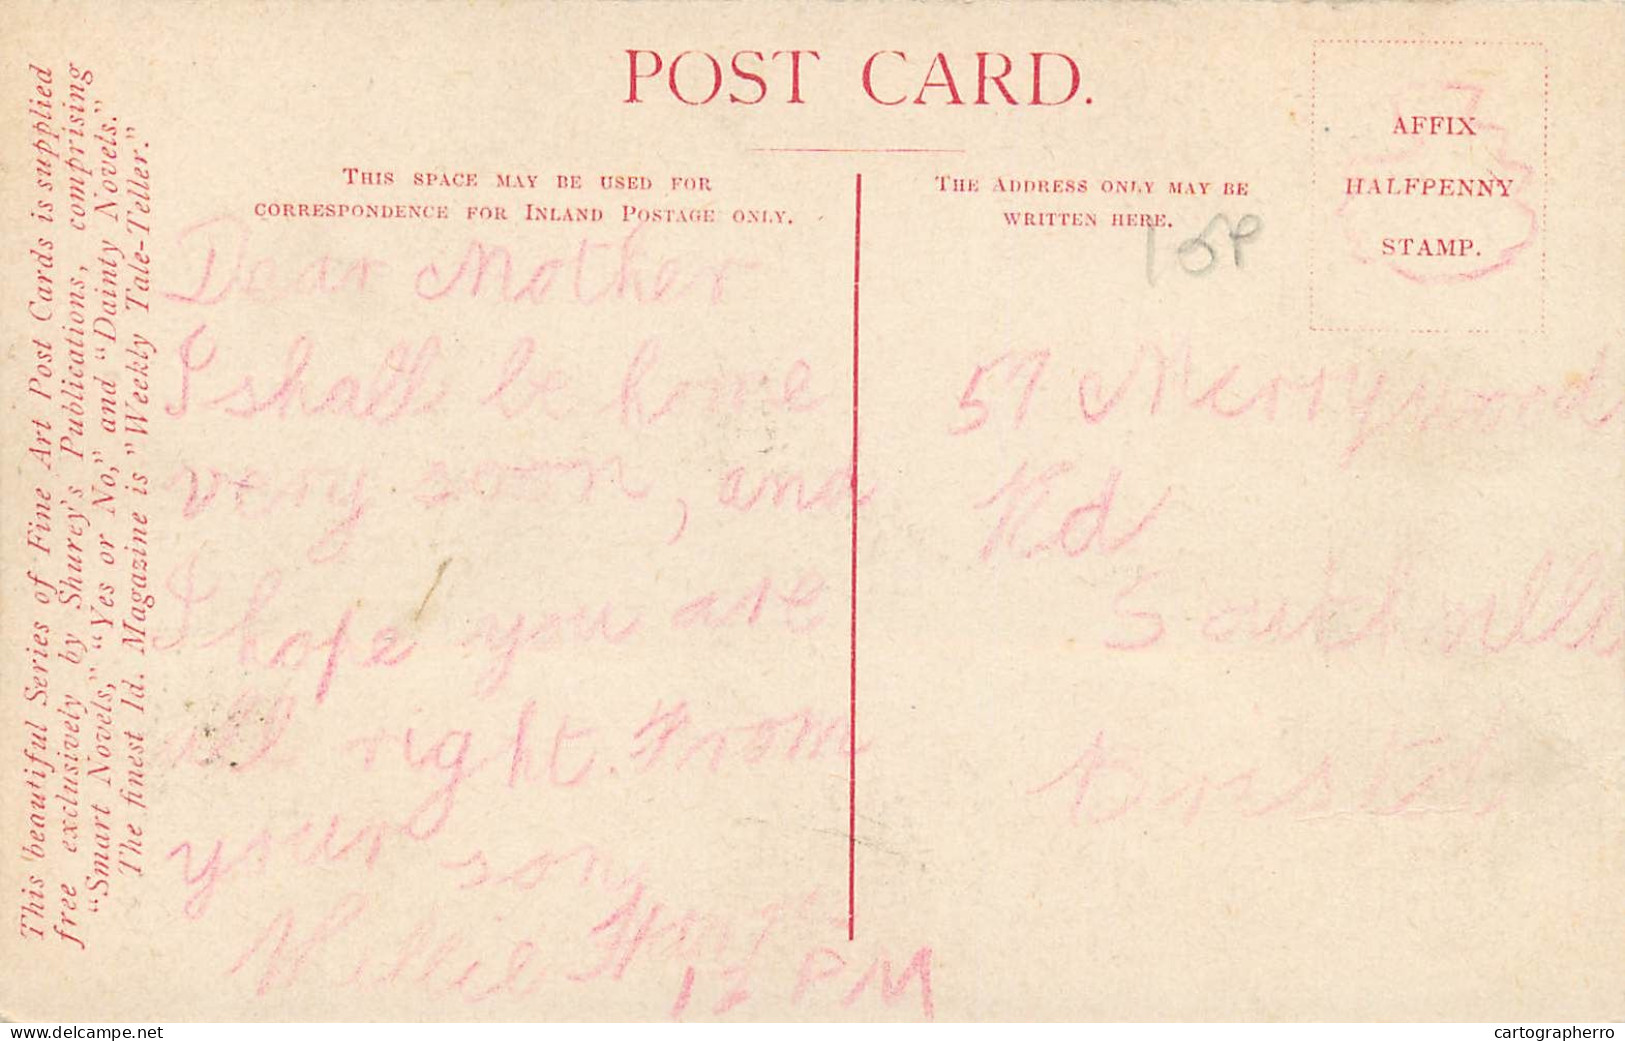 POST CARD.
AFFIX
HALFPENNY
STAMP.
THIS SPACE MAY BE USED FOR
CORRESPONDENCE FOR INLAND POSTAGE ONLY.
THE ADDRESS ONLY MAY BE
WRITTEN HERE.
This beautiful Series of Fine Art Post Cards is supplied
free exclusively by Shurey's Publications, comprising
"Smart Novels," "Yes or No," and "Dainty Novels."
The finest 1d. Magazine is "Weekly Tale-Teller."
Dear Mother
I shall be home
very soon, and
I hope you are
all right. From
your son
Willie
12 PM
57 Merrywood
Rd
Southville
Bristol
delcampe.net
cartographerro